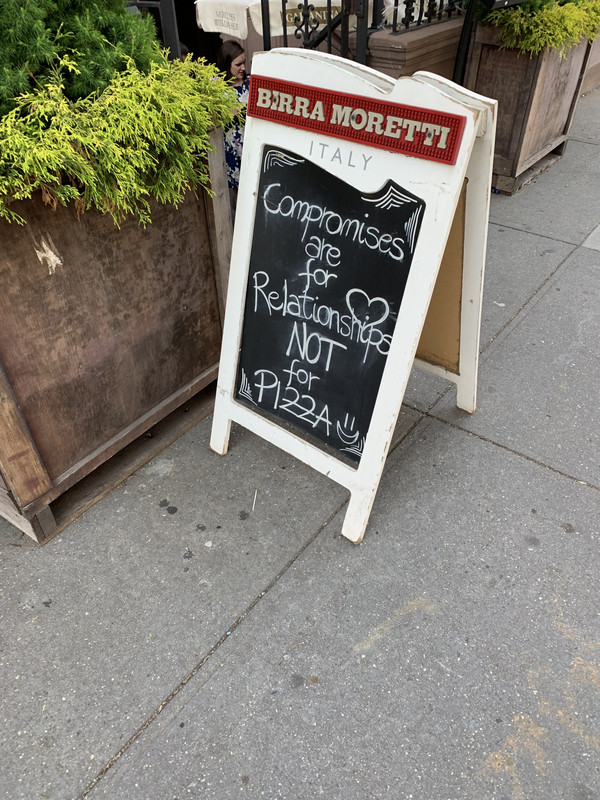 BIRRA MORETTI
ITALY
Compromises
are
for
Relationships
NOT
for
PIZZA